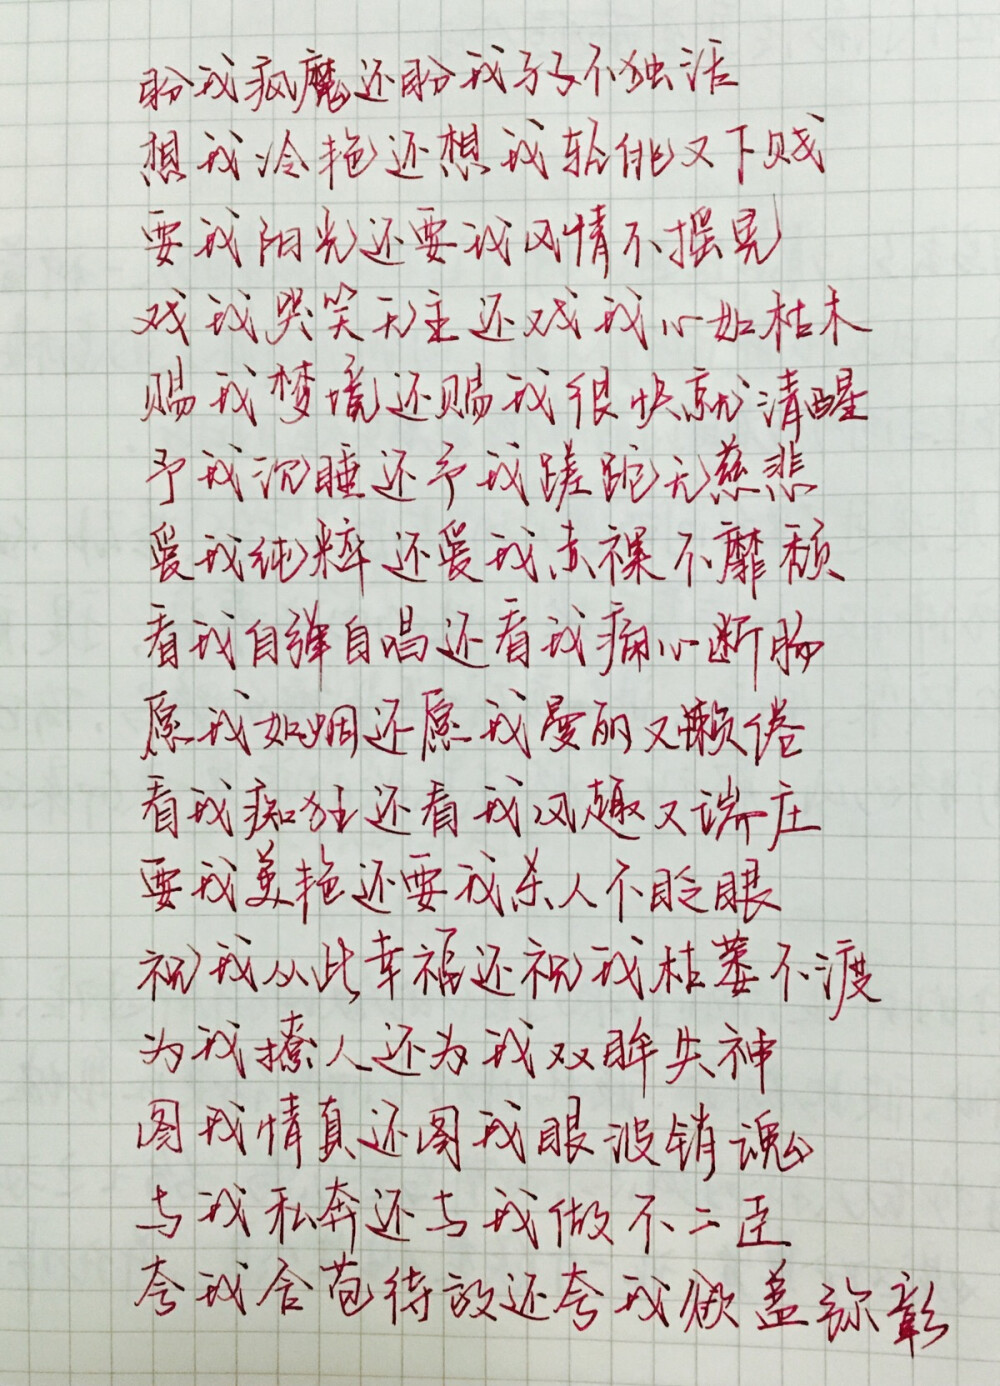 盼我疯魔还盼我孑孑不独活
想我冷艳还想我轻佻又下贱
要我阳光还要我风情不摇晃
戏我哭笑无主还戏我心如枯木
赐我梦境还赐我很快就清醒
予我沉睡还予我蹉跎无慈悲
爱我纯粹还爱我赤裸不靡颓
看我自弹自唱还看我痛心断肠
愿我如烟还愿我曼丽又懒倦
看我痴狂还看我风趣又端庄
要我美艳还要我杀人不眨眼
祝我从此幸福还祝我枯萎不渡
为我撩人还为我双眸失神
图我情真还图我眼波销魂
与我私奔还与我做不二臣
夸我含苞待放还夸我欲盖弥彰